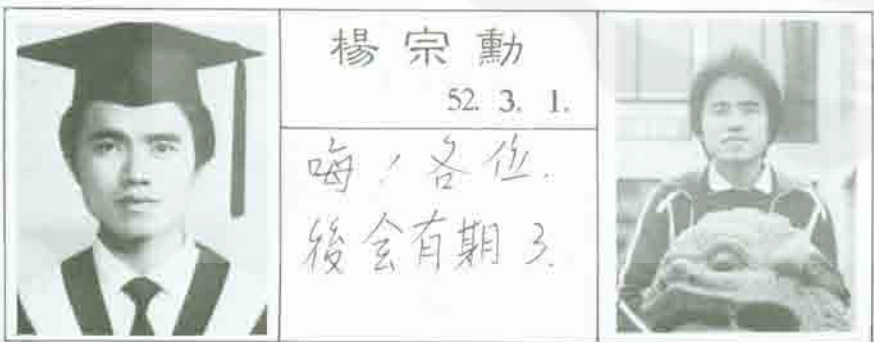 楊宗勳
52. 3. 1.
嗨！各位.
後会有期 3.